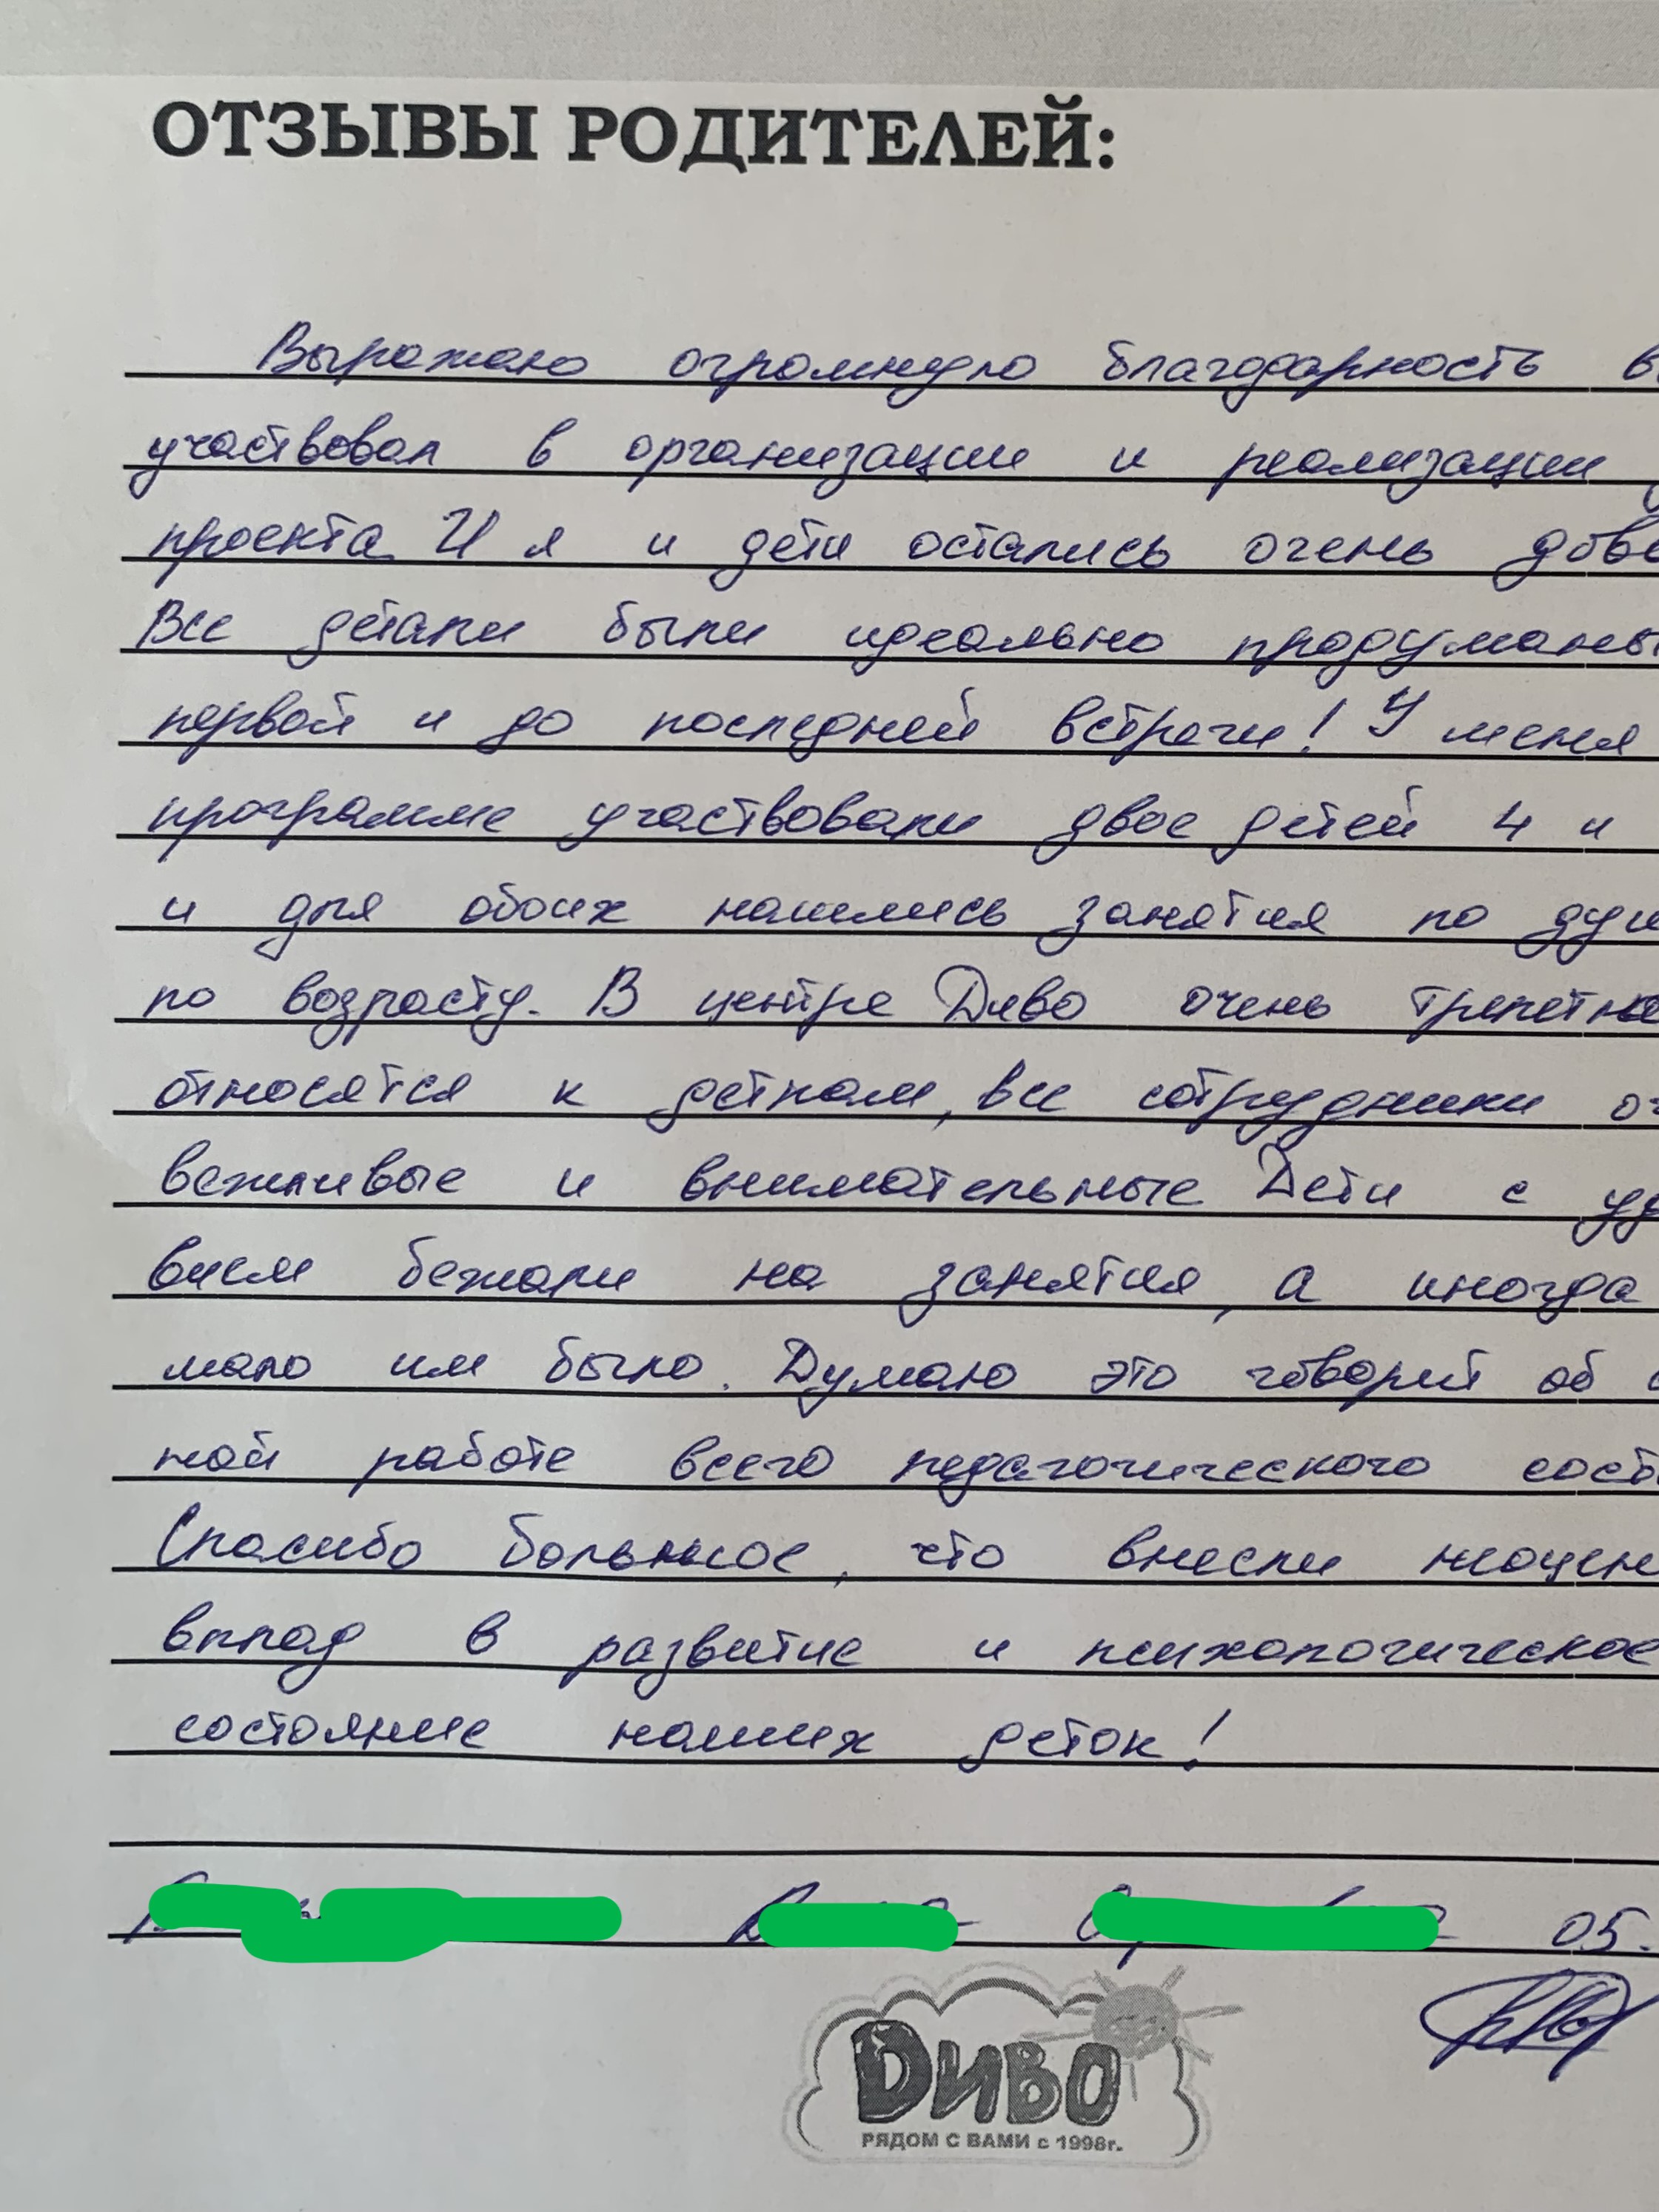 ОТЗЫВЫ РОДИТЕЛЕЙ:
Выражаю огромную благодарность
участвовал в организации и реализации
проекта И я и дети остались очень
Все детали были идеально продуманы
первой и до последней встречи! У меня
программе участвовали двое детей 4 и
и для обоих нашлись занятия по
по возрасту. В центре Диво очень трепетно
относятся к деткам, все сотрудники
вежливые и внимательные Дети с
вием бежали на занятия, а иногда
мало им было. Думаю это говорит об
ной работе всего педагогического
Спасибо большое, что внесли
вклад в развитие и психологическое
состояние наших деток!
05.
Диво
РЯДОМ С ВАМИ с 1998г.